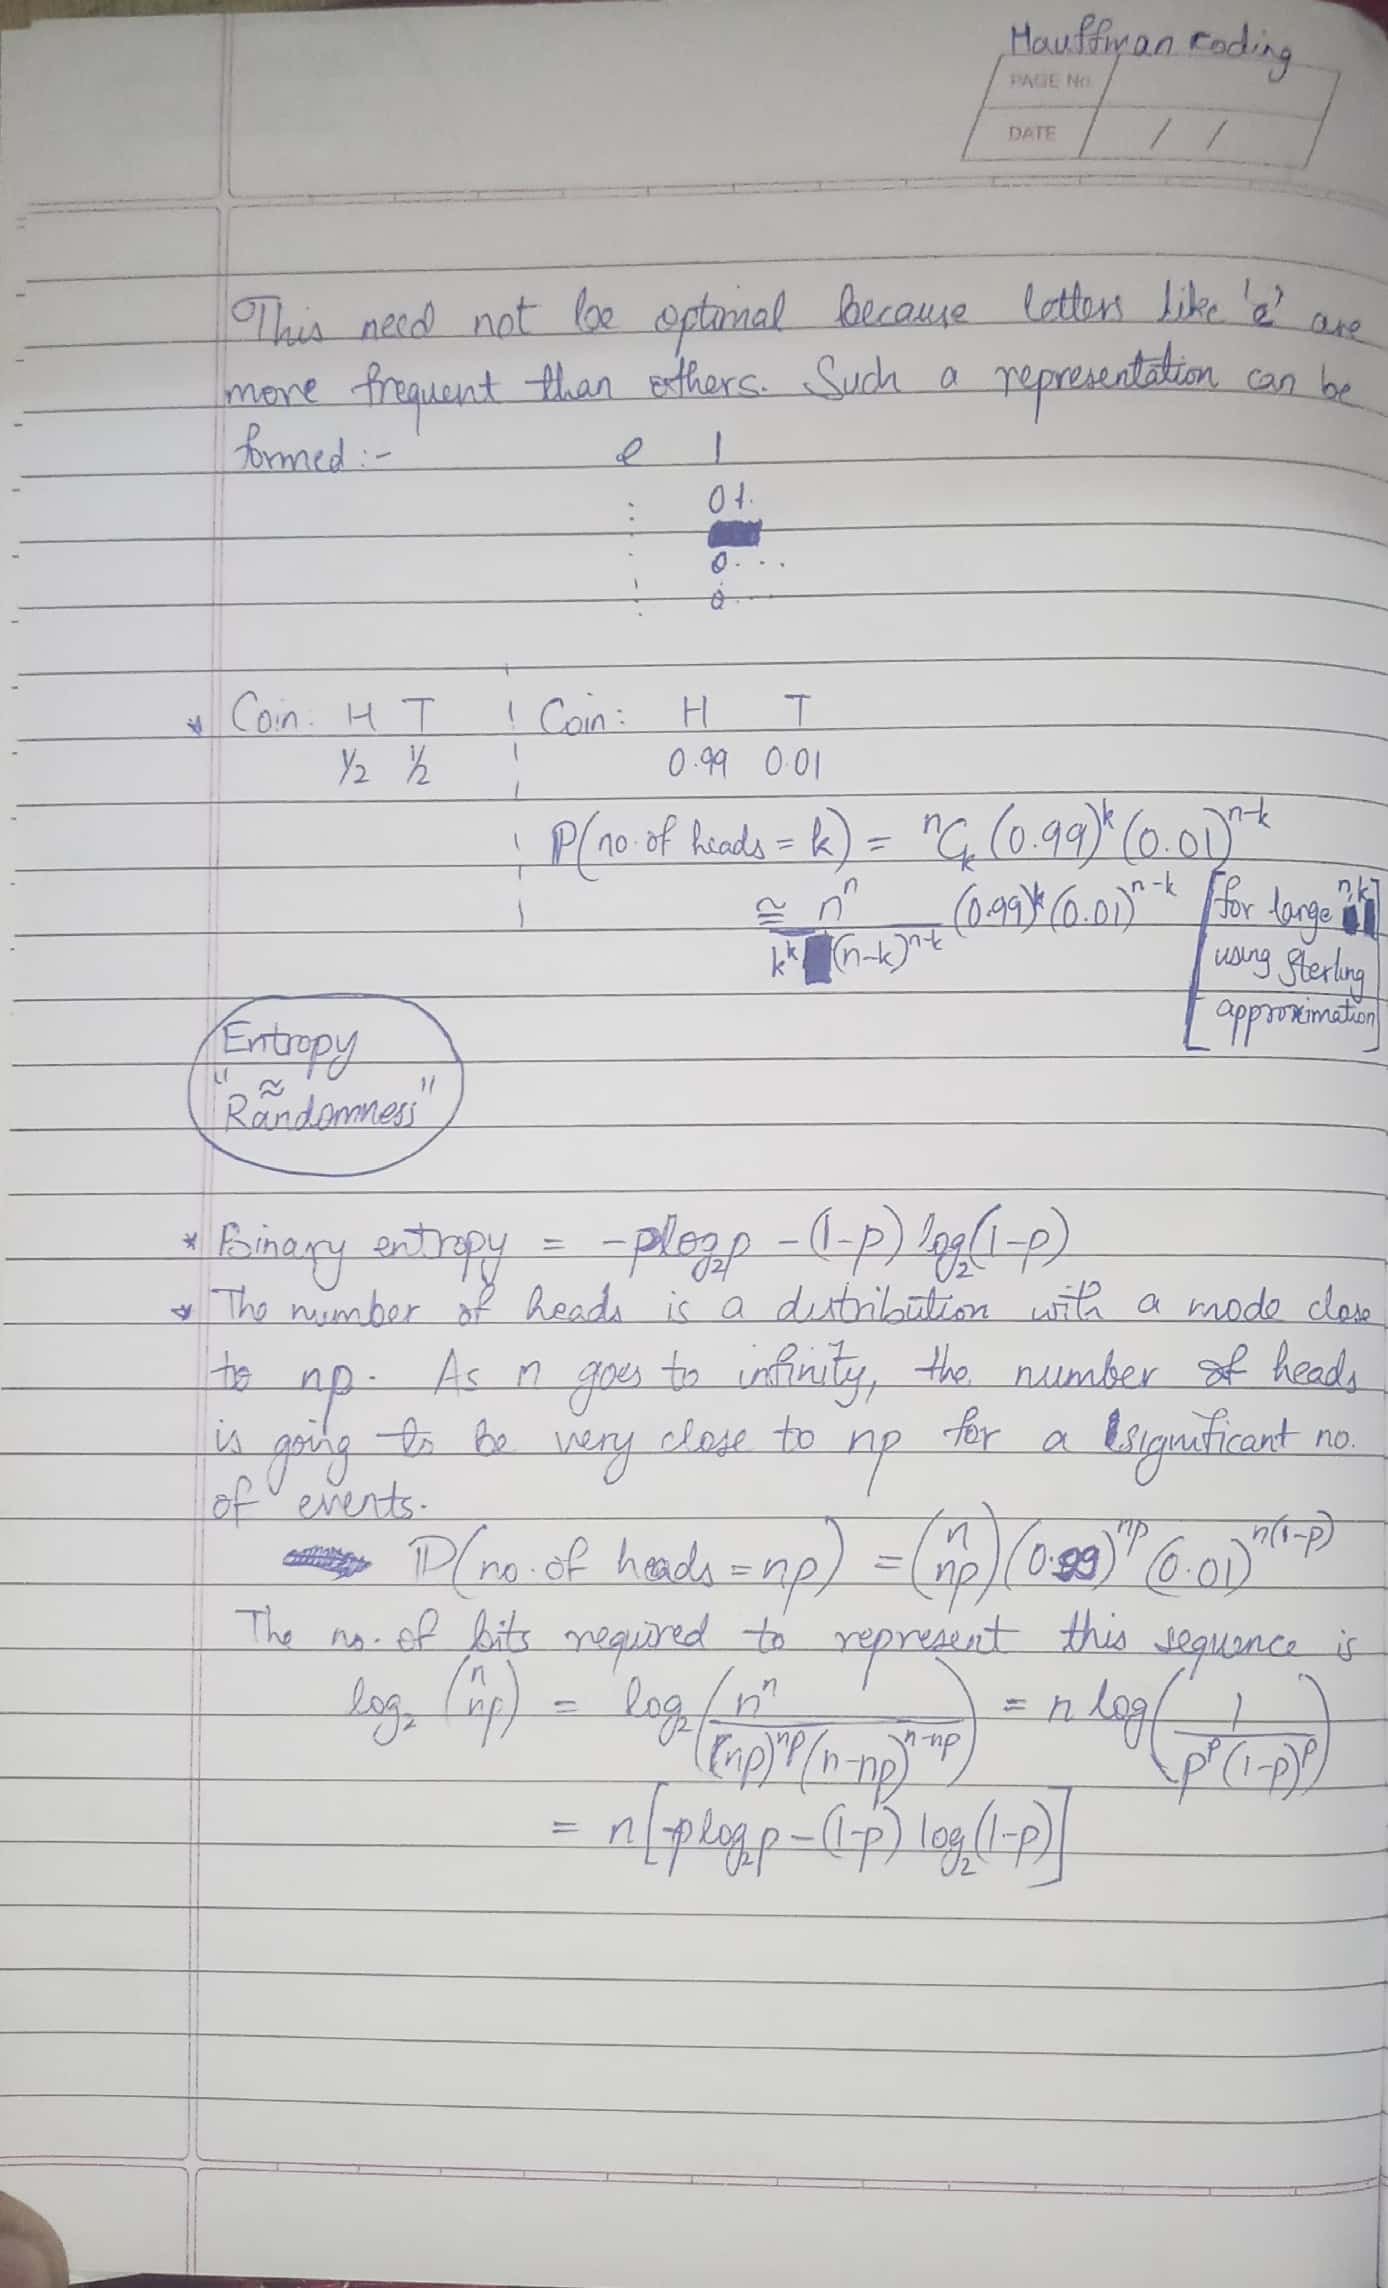 Hauffman coding
PAGE No.
DATE / /
This need not be optimal because letters like 'e' are
more frequent than others. Such a representation can be
formed :- e 1
: 01.
0...
0...
* Coin: H T ¦ Coin: H T
1/2 1/2 ¦ 0.99 0.01
P(no. of heads = k) = ⁿCₖ (0.99)^k (0.01)^(n-k)
≅ n^n / (k^k (n-k)^(n-k)) (0.99)^k (0.01)^(n-k) [for large n,k
using Sterling
approximation]
Entropy
≈
"Randomness"
* Binary entropy = -plog₂p - (1-p) log₂(1-p)
* The number of heads is a distribution with a mode close
to np. As n goes to infinity, the number of heads
is going to be very close to np for a significant no.
of events.
P(no. of heads = np) = (n np) (0.99)^(np) (0.01)^(n(1-p))
The no. of bits required to represent this sequence is
log₂ (n np) = log₂ (n^n / ((np)^(np) (n-np)^(n-np))) = n log (1 / (p^p (1-p)^p))
= n[-plog₂p - (1-p) log₂(1-p)]